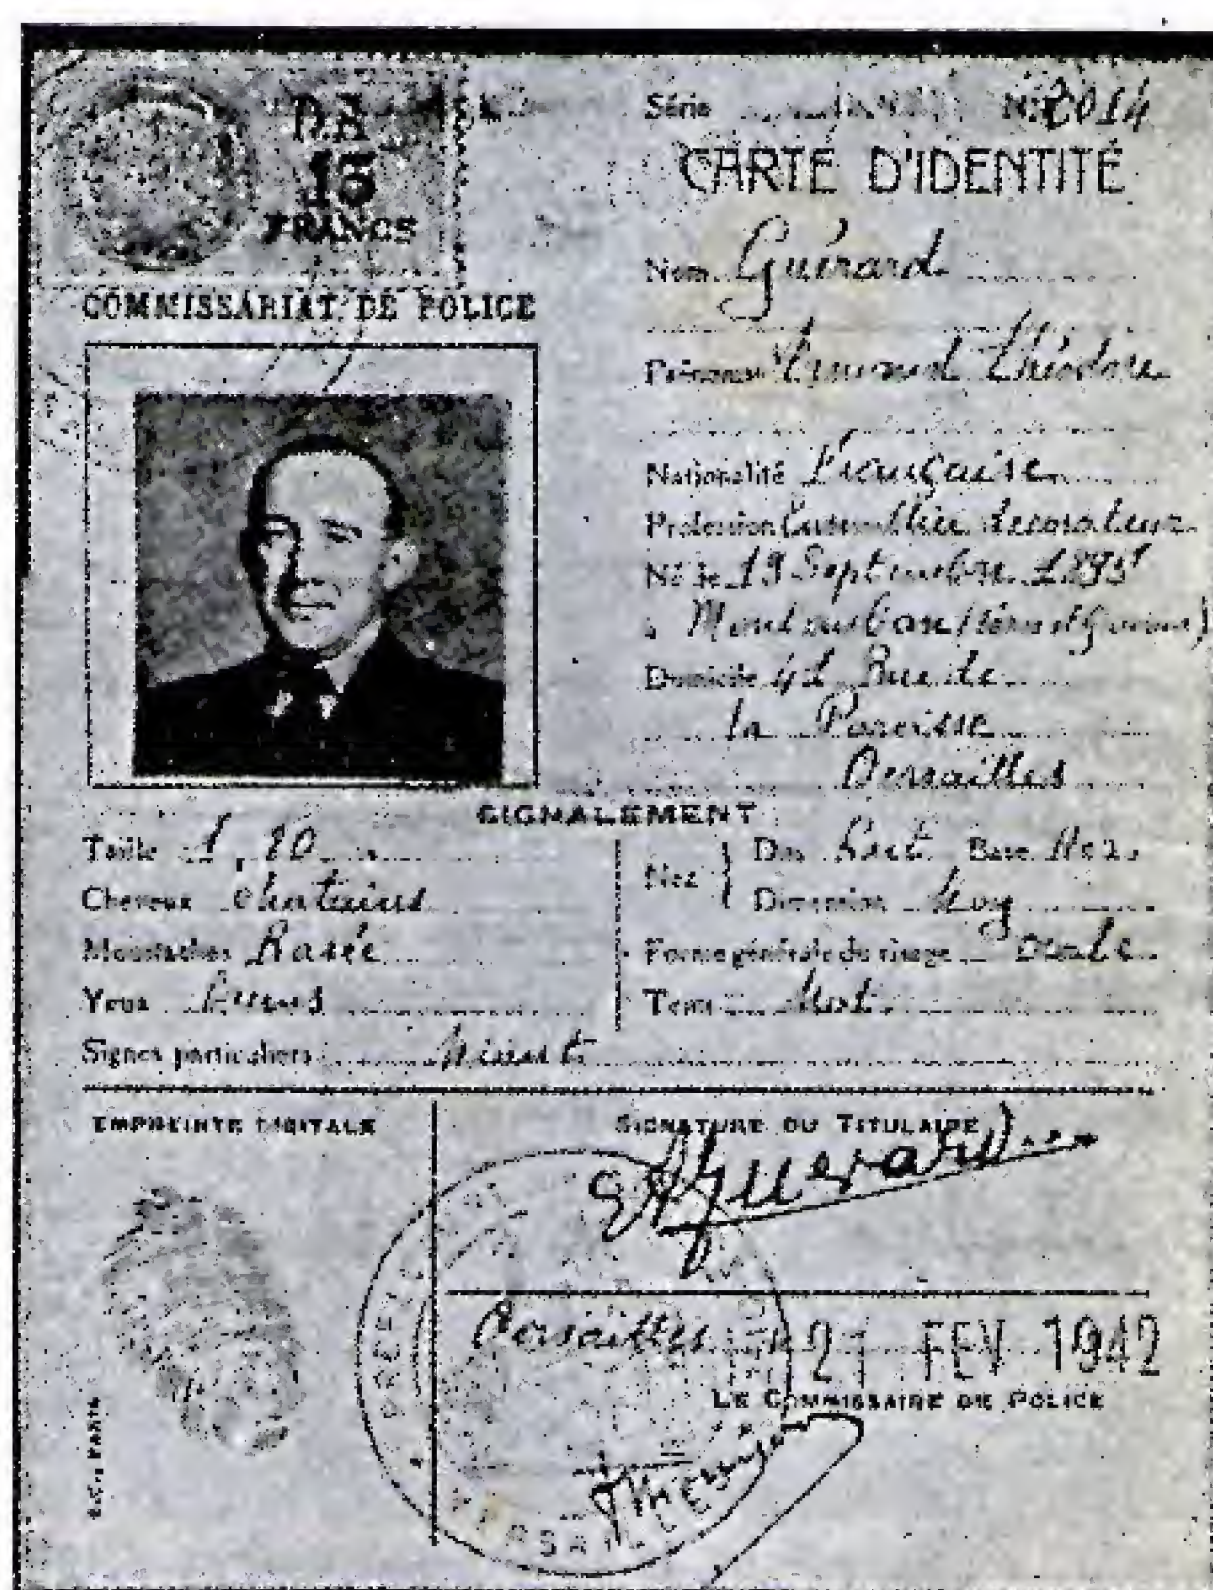 D.A
15
FRANCS
COMMISSARIAT DE POLICE
Série N° 2014
CARTE D'IDENTITÉ
Nom Guérard
Prénoms Théodore
Nationalité Française
Profession décorateur
Né le 19 Septembre 1895
à Montauban (Tarn et Garonne)
Domicile 41 Rue de
la Paroisse
Versailles
SIGNALEMENT
Taille 1,80
Cheveux Chatains
Moustaches Rasée
Yeux
Signes particuliers Néant
Nez Dos Rect. Base
Dimension Moy
Forme générale du visage Ovale
Teint Mat
EMPREINTE DIGITALE
SIGNATURE DU TITULAIRE
Guerard
Versailles 21 FEV 1942
LE COMMISSAIRE DE POLICE
VERSAILLES
PARIS